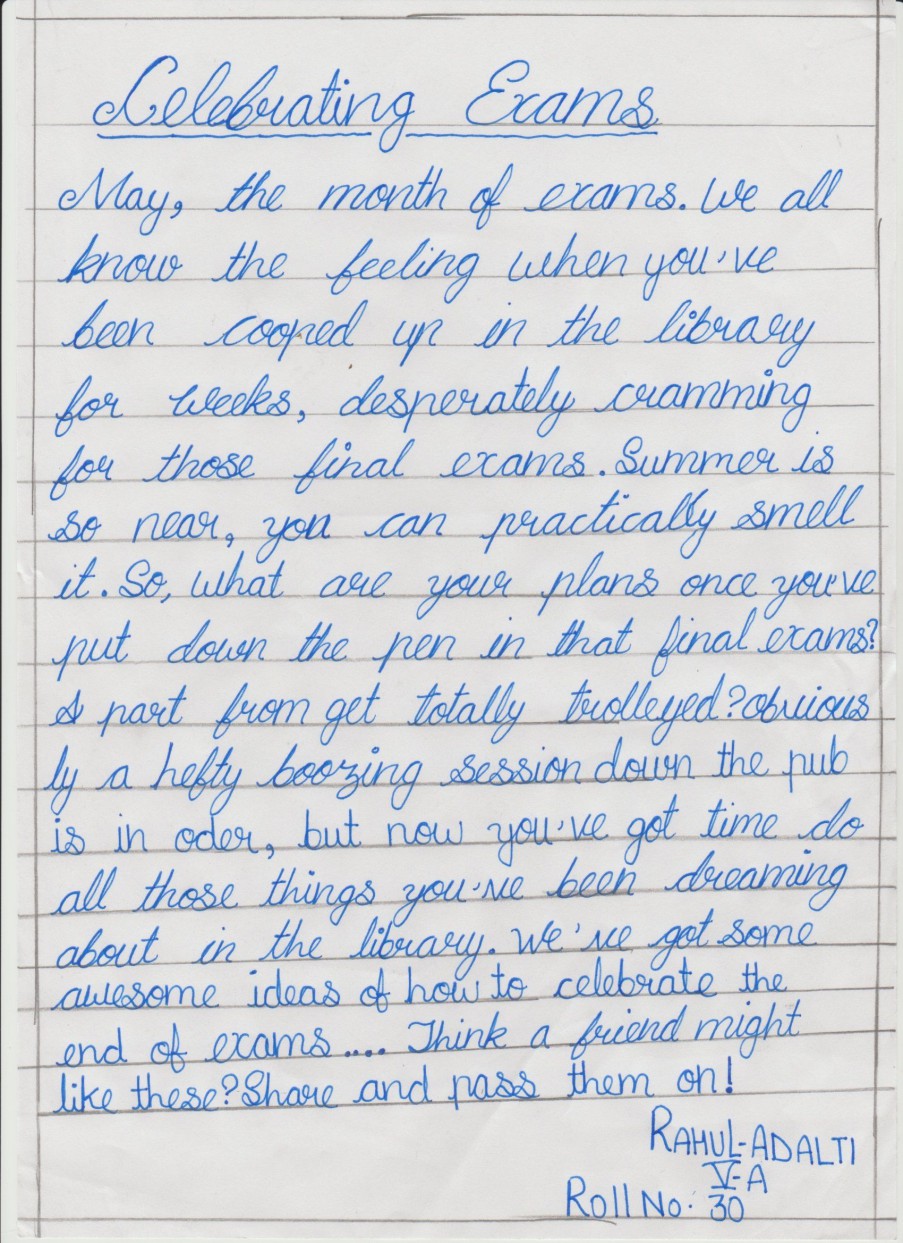 Celebrating Exams
May, the month of exams. We all
know the feeling when you've
been cooped up in the library
for weeks, desperately cramming
for those final exams. Summer is
so near, you can practically smell
it. So, what are your plans once you've
put down the pen in that final exams?
A part from get totally trolleyed? obvious
ly a hefty boozing session down the pub
is in oder, but now you've got time do
all those things you've been dreaming
about in the library. We've got some
awesome ideas of how to celebrate the
end of exams.... Think a friend might
like these? Share and pass them on!
RAHUL-ADALTI
V-A
Roll No: 30